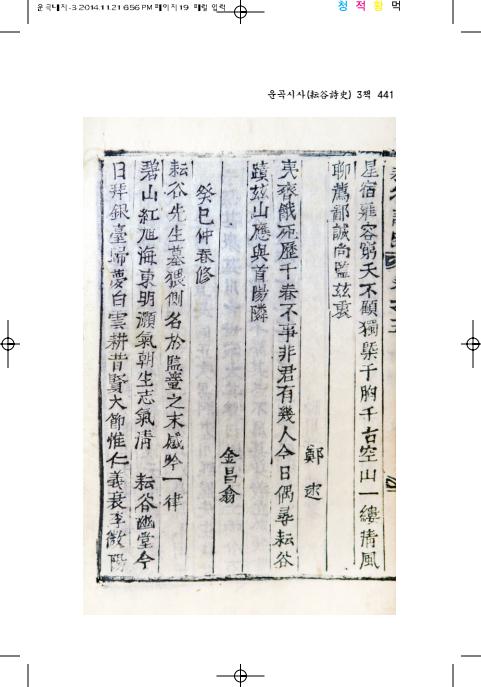 운곡내지-3 2014.11.21 6:56 PM 페이지19 매킬 입력
청 적 황 먹
운곡시사(耘谷詩史) 3책 441
星宿雍容窮天不顧獨榮千胸千古空山一縷淸風
聊薦鄙誠尚監玆哀
鄭 逑
夷齊餓死歷千春不事非君有幾人今日偶尋耘谷
蹟玆山應與首陽隣
金昌翕
癸巳仲春修
耘谷先生墓猥側名於監董之末感吟一律
碧山紅旭海東明灝氣朝生志氣淸 耘谷幽堂今
日拜銀臺歸夢白雲耕昔賢大節惟仁義衰季微陽